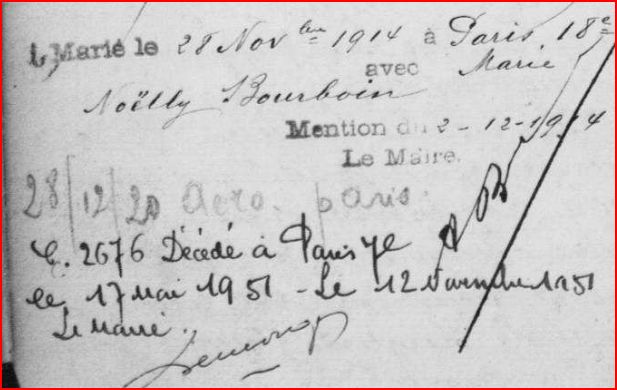 Marié le 28 Nov bre 1914 à Paris, 18e
avec Marie
Noëlly Bourboin
Mention du 2-12-1914
Le Maire.
28/12/20 aero. paris.
C. 2676 Décédé à Paris
le 17 Mai 1951 - Le 12 Novembre 1951
Le Maire.